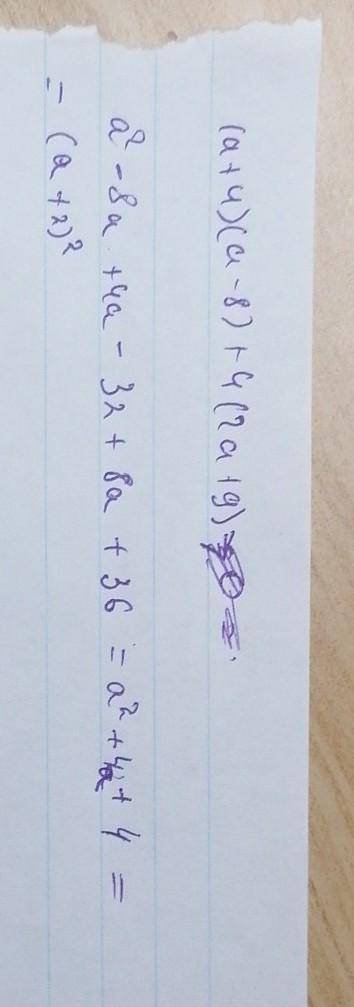 (a+4)(a-8)+4(2a+9)
a² - 8a + 4a - 32 + 8a + 36 = a² + 4a + 4 =
= (a+2)²